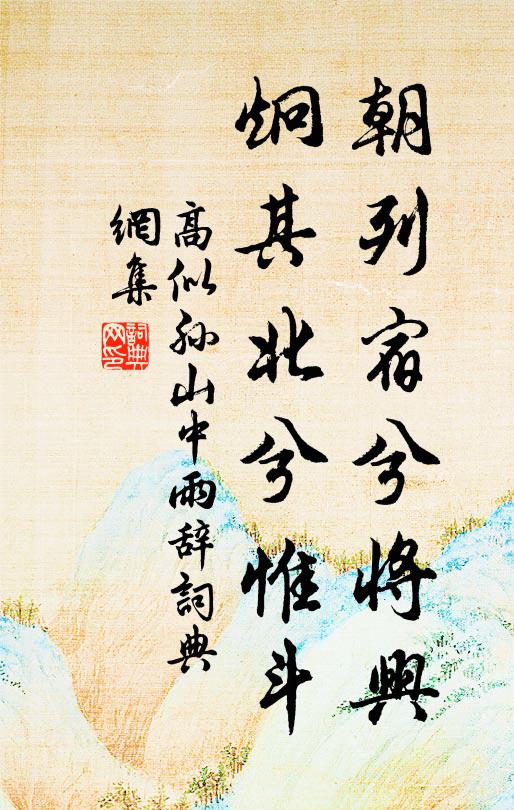 朝列宿兮将興
炯其北兮惟斗
高似孙山中雨辞詞典
網集
詞典
网印